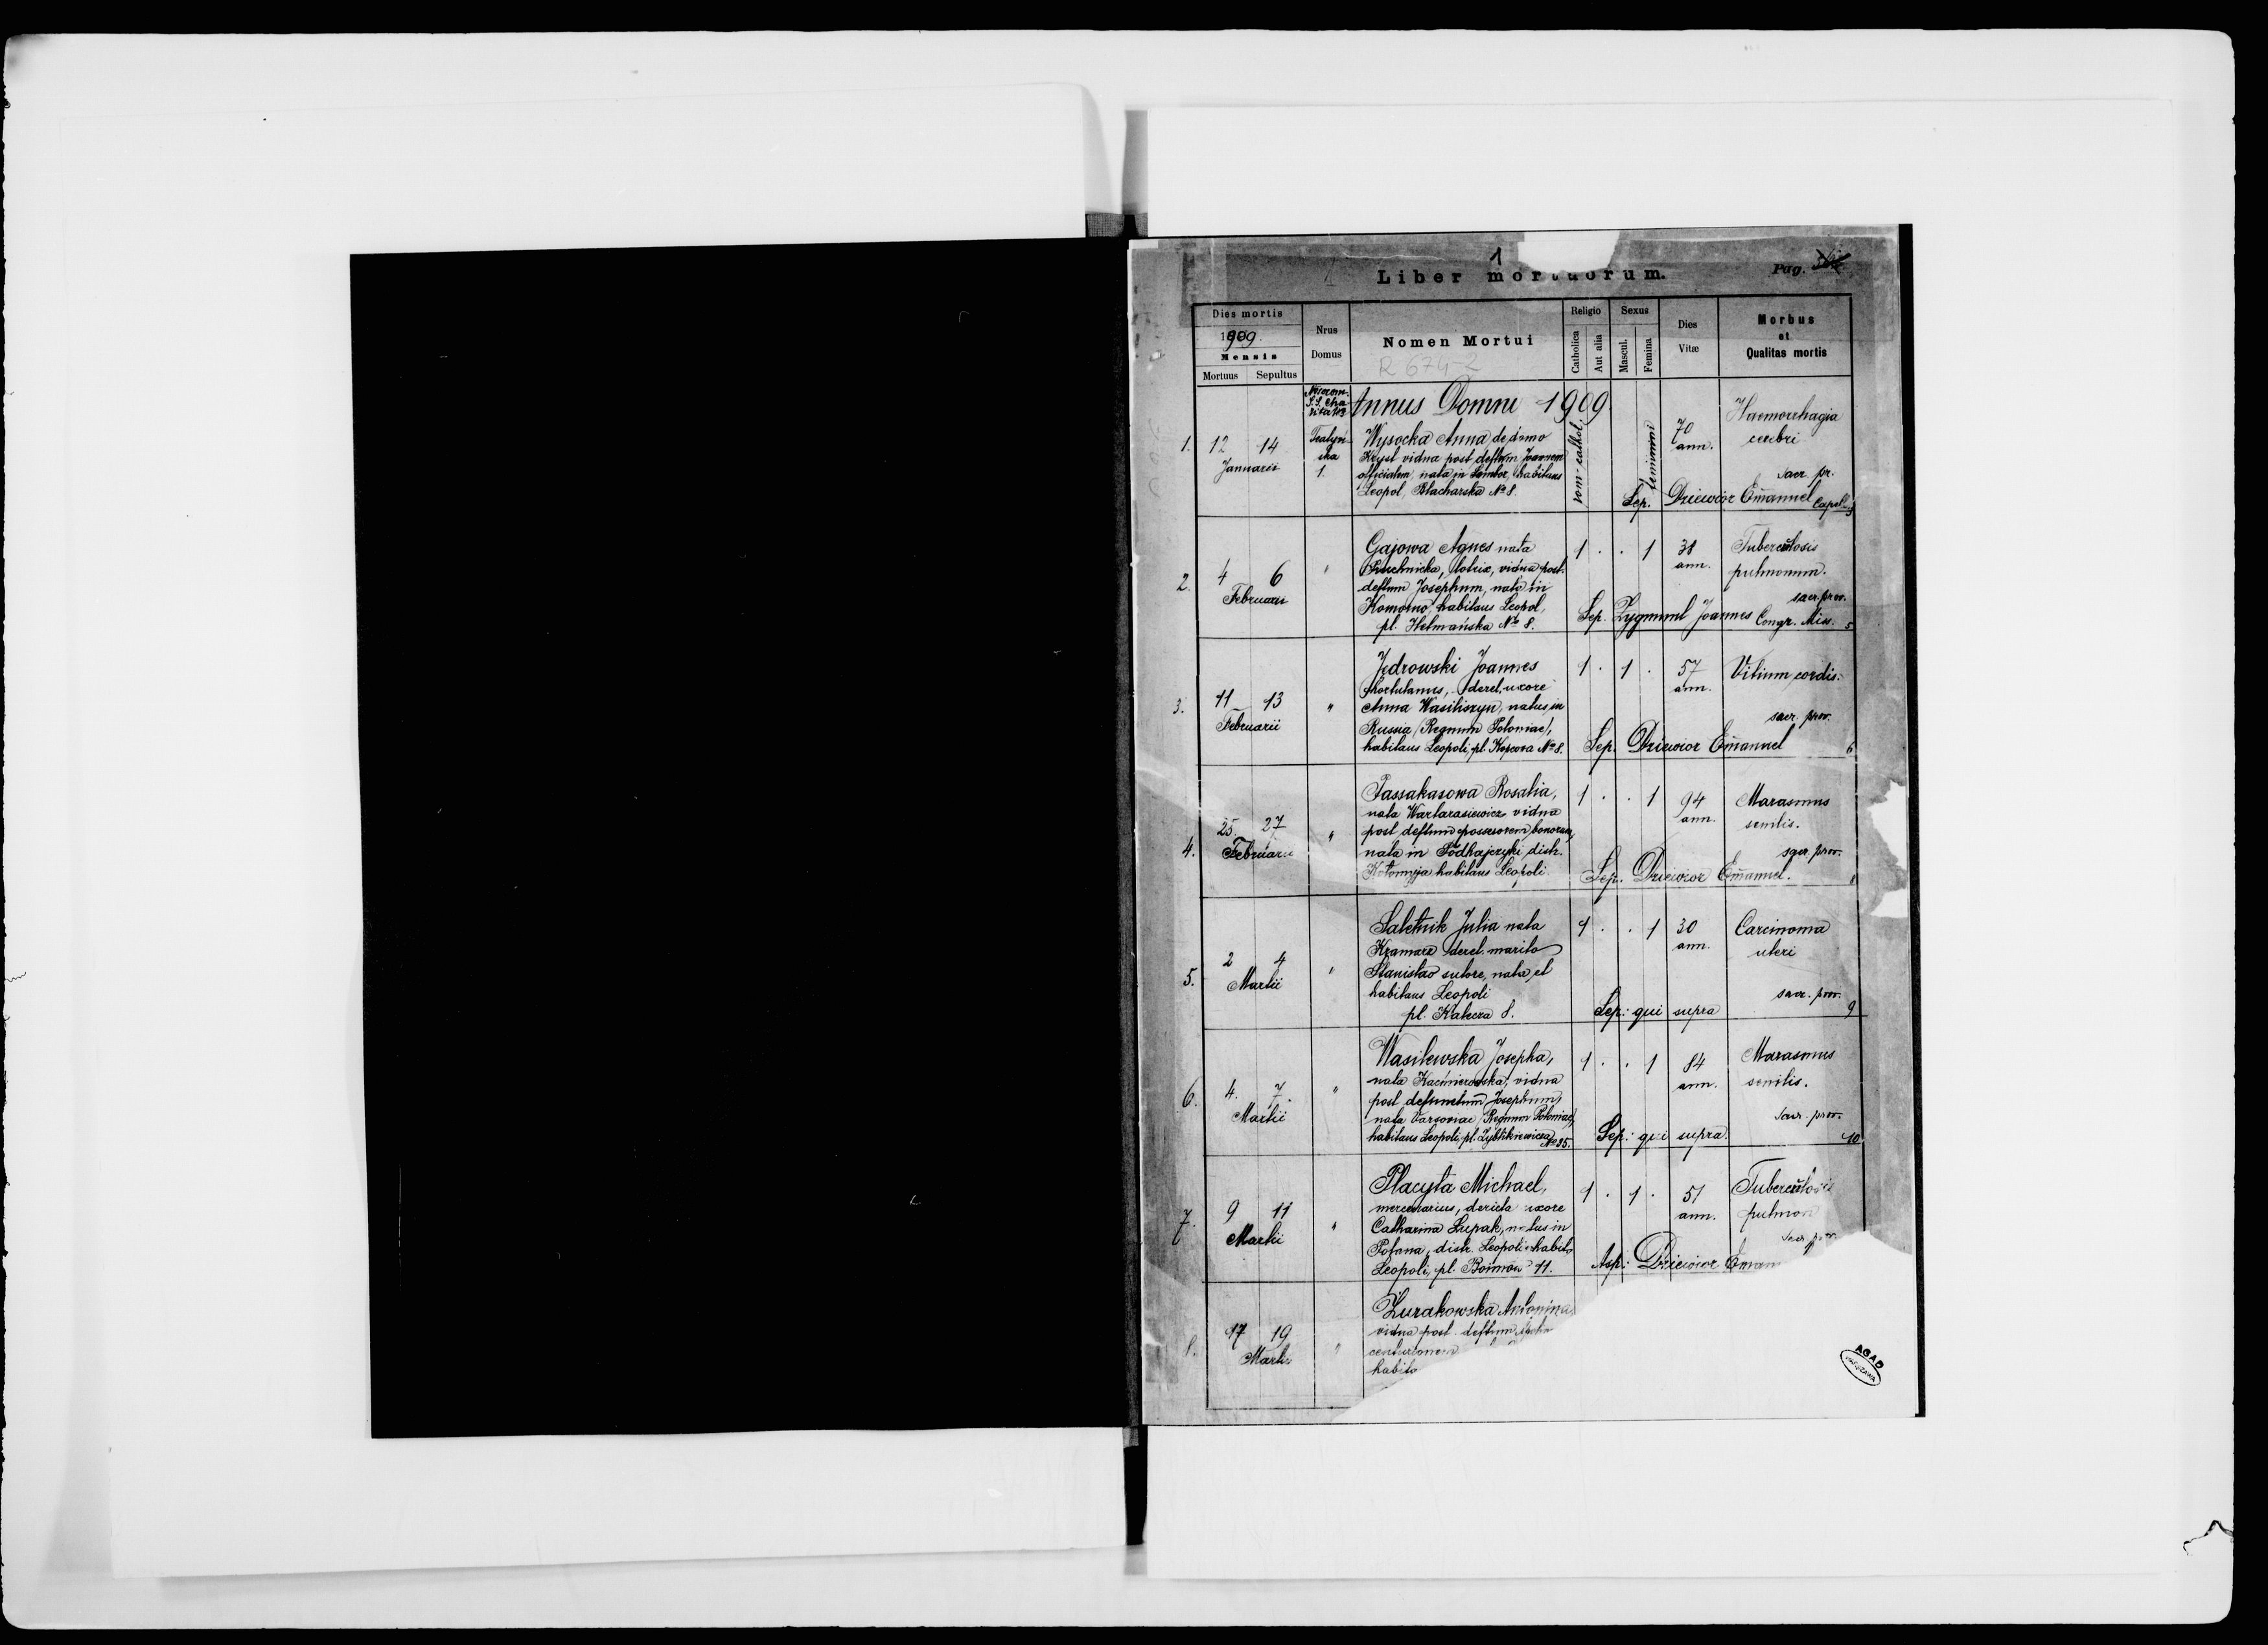 1
Liber mortuorum.
Pag.
Dies mortis
1909.
Mensis
Mortuus Sepultus
Nrus
Domus
Nomen Mortui
R 674 2
Religio
Catholica
Aut alia
Sexus
Mascul.
Femina
Dies
Vitæ
Morbus
et
Qualitas mortis
Annus Domni 1909.
1. 12 14
Januarii
1.
Wysocka Anna de domo
Kryst vidua post deftum Joannem
officialem, nata in Sambor, habitans
Leopol, Blacharska No 8.
rom-cathol.
feminini
70
ann.
Haemorrhagia
cerebri
sacr. pr.
Sep. Dziewior Emanuel Capell.
2. 4 6
Februarii
"
Gajowa Agnes nata
lotrix, vidua post
deftum Josephum, nata in
Komorno, habitans Leopol,
pl. Helmańska No 8.
1 . . 1
38
ann.
Tuberculosis
pulmonum.
sacr. prov.
Sep. Zygmunt Joannes Congr. Miss. 5
3. 11 13
Februarii
"
Jędrowski Joannes
hortulanus, derel. uxore
Anna Wasiliszyn, natus in
Russia (Regnum Poloniae),
habitans Leopoli, pl. No 8.
1 . 1 .
57
ann.
Vitium cordis.
sacr. prov.
Sep. Dziewior Emanuel 6
4. 25. 27
Februarii
"
Passakasowa Rosalia,
nata Wartarasiewicz vidua
post deftum possesorem bonorum,
nata in Podhajczyki, distr.
Kołomyja habitans Leopoli
1 . . 1
94
ann.
Marasmus
senilis.
sacr. prov.
Sep. Dziewior Emanuel.
5. 2 4
Martii
"
Saletnik Julia nata
Kramarz derel. marito
Stanislao sutore, nata et
habitans Leopoli
pl. 8.
1 . . 1
30
ann.
Carcinoma
uteri
sacr. prov.
Sep: qui supra 9
6. 4. 7.
Martii
"
Wasilewska Josepha,
nata Kaźmierowska, vidua
post defunctum Josephum,
nata Varsoviae (Regnum Poloniae),
habitans Leopoli, pl. Zyblikiewicza No 35.
1 . . 1
84
ann.
Marasmus
senilis.
sacr. prov.
Sep: qui supra. 10
7. 9 11
Martii
"
Placyta Michael,
mercenarius, dericta uxore
Catharina Łupak, natus in
distr. Leopoli habitans
Leopoli, pl. Boimów 11.
1 . 1 .
51
ann.
Tuberculosis
pulmon
sacr. prov.
Asp: Dziewior Emanu
8. 17 19
Martii
"
Żurakowska Antonina
vidua post deftum
centurionem
habita
AGAD
WARSZAWA